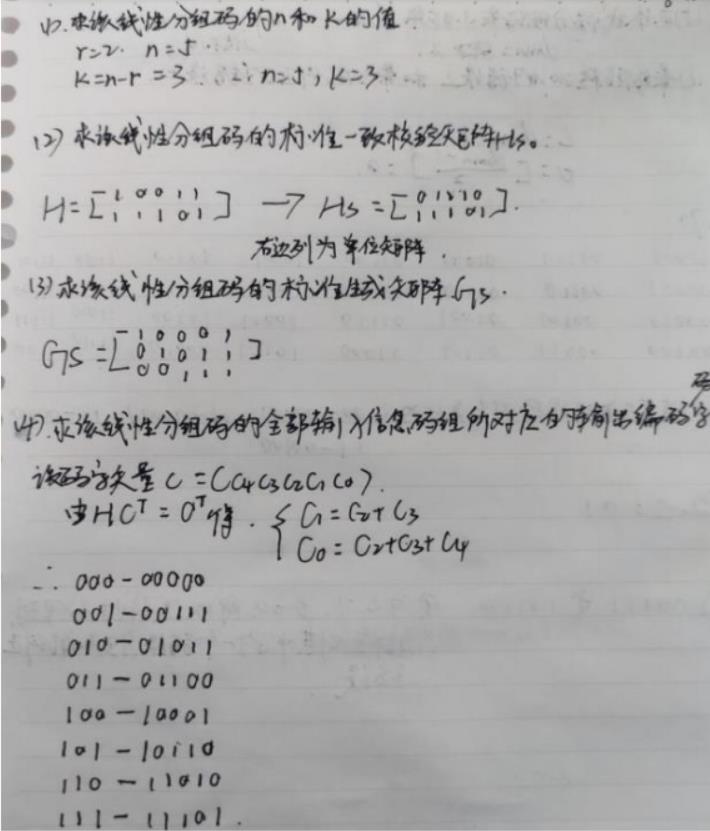 (1). 求该线性分组码的n和K的值.
r=2. n=5
K=n-r=3. ∴ n=5, K=3
(2) 求该线性分组码的标准一致校验矩阵Hs。
H=[1 0 0 1 1
1 1 1 0 1] → Hs=[0 1 1 1 0
1 1 1 0 1].
右边列为单位矩阵.
(3) 求该线性分组码的标准生成矩阵Gs.
Gs=[1 0 0 0 1
0 1 0 1 1
0 0 1 1 1]
(4). 求该线性分组码的全部输入信息码组所对应的输出编码码字
该码字矢量 C=(C4 C3 C2 C1 C0).
由HC^T=0^T得. { C1=C2+C3
C0=C2+C3+C4
∴ 000-00000
001-00111
010-01011
011-01100
100-10001
101-10110
110-11010
111-11101.